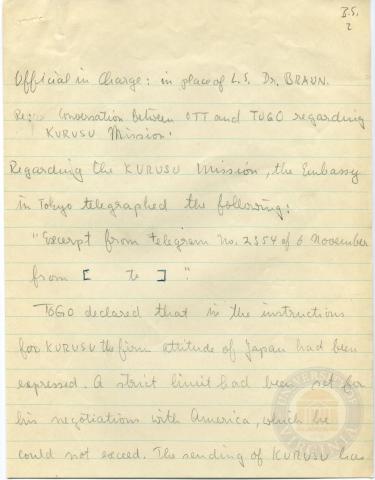 B.S.
2
Official in Charge: in place of L.S. Dr. BRAUN.
Re: Conversation between OTT and TOGO regarding
KURUSU Mission.
Regarding the KURUSU Mission, the Embassy
in Tokyo telegraphed the following:
"Excerpt from telegram No. 2354 of 6 November
from [ to ] ".
TOGO declared that in the instructions
for KURUSU the firm attitude of Japan had been
expressed. A strict limit had been set for
his negotiations with America, which he
could not exceed. The sending of KURUSU has
UNIVERSITY OF VIRGINIA